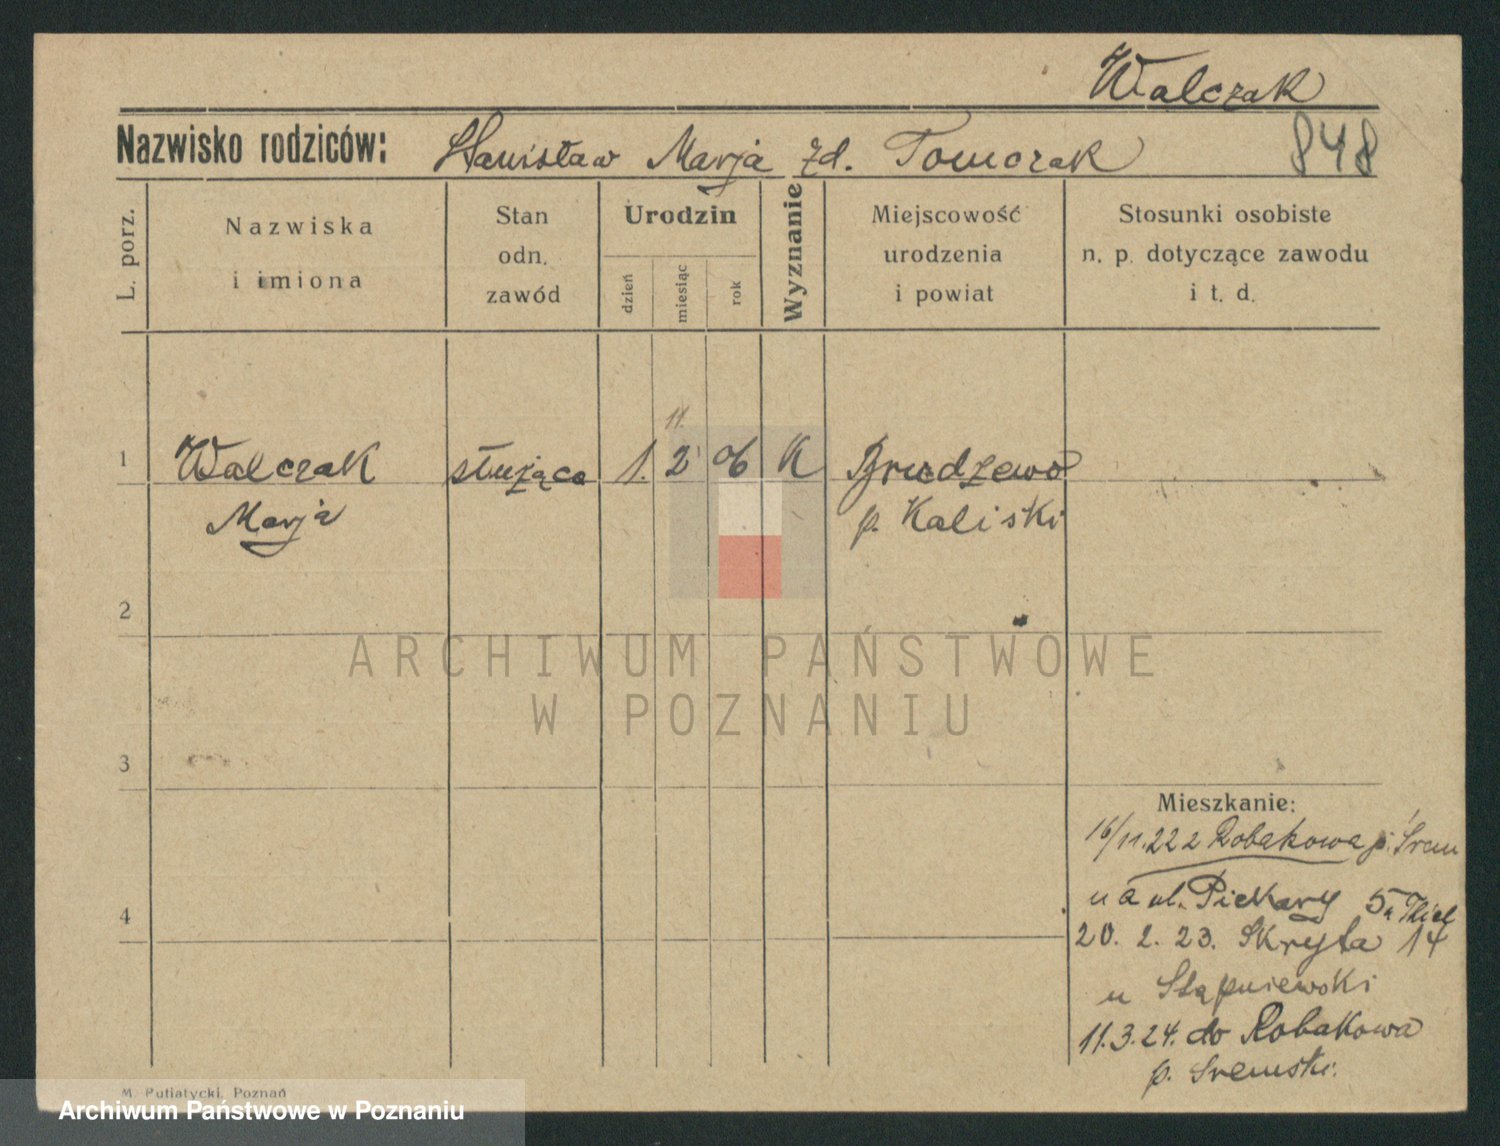 Walczak
Nazwisko rodziców: Stanisław Marja zd. Tomczak 848
L. porz.
Nazwiska i imiona
Stan odn. zawód
Urodzin
dzień
miesiąc
rok
Wyznanie
Miejscowość urodzenia i powiat
Stosunki osobiste n. p. dotyczące zawodu i t. d.
11.
1 Walczak służąca 1. 2 06 K Brudzewo
Marja p. Kaliski
2
3
4
Mieszkanie:
16/11.22 z Robakowa p. Śrem
na ul. Piekary 5a Thiel
20. 2. 23. Skryta 14
u Stąpniewski
11.3.24. do Robakowa
p. Sremski.
ARCHIWUM PAŃSTWOWE
W POZNANIU
M. Putiatycki, Poznań
Archiwum Państwowe w Poznaniu